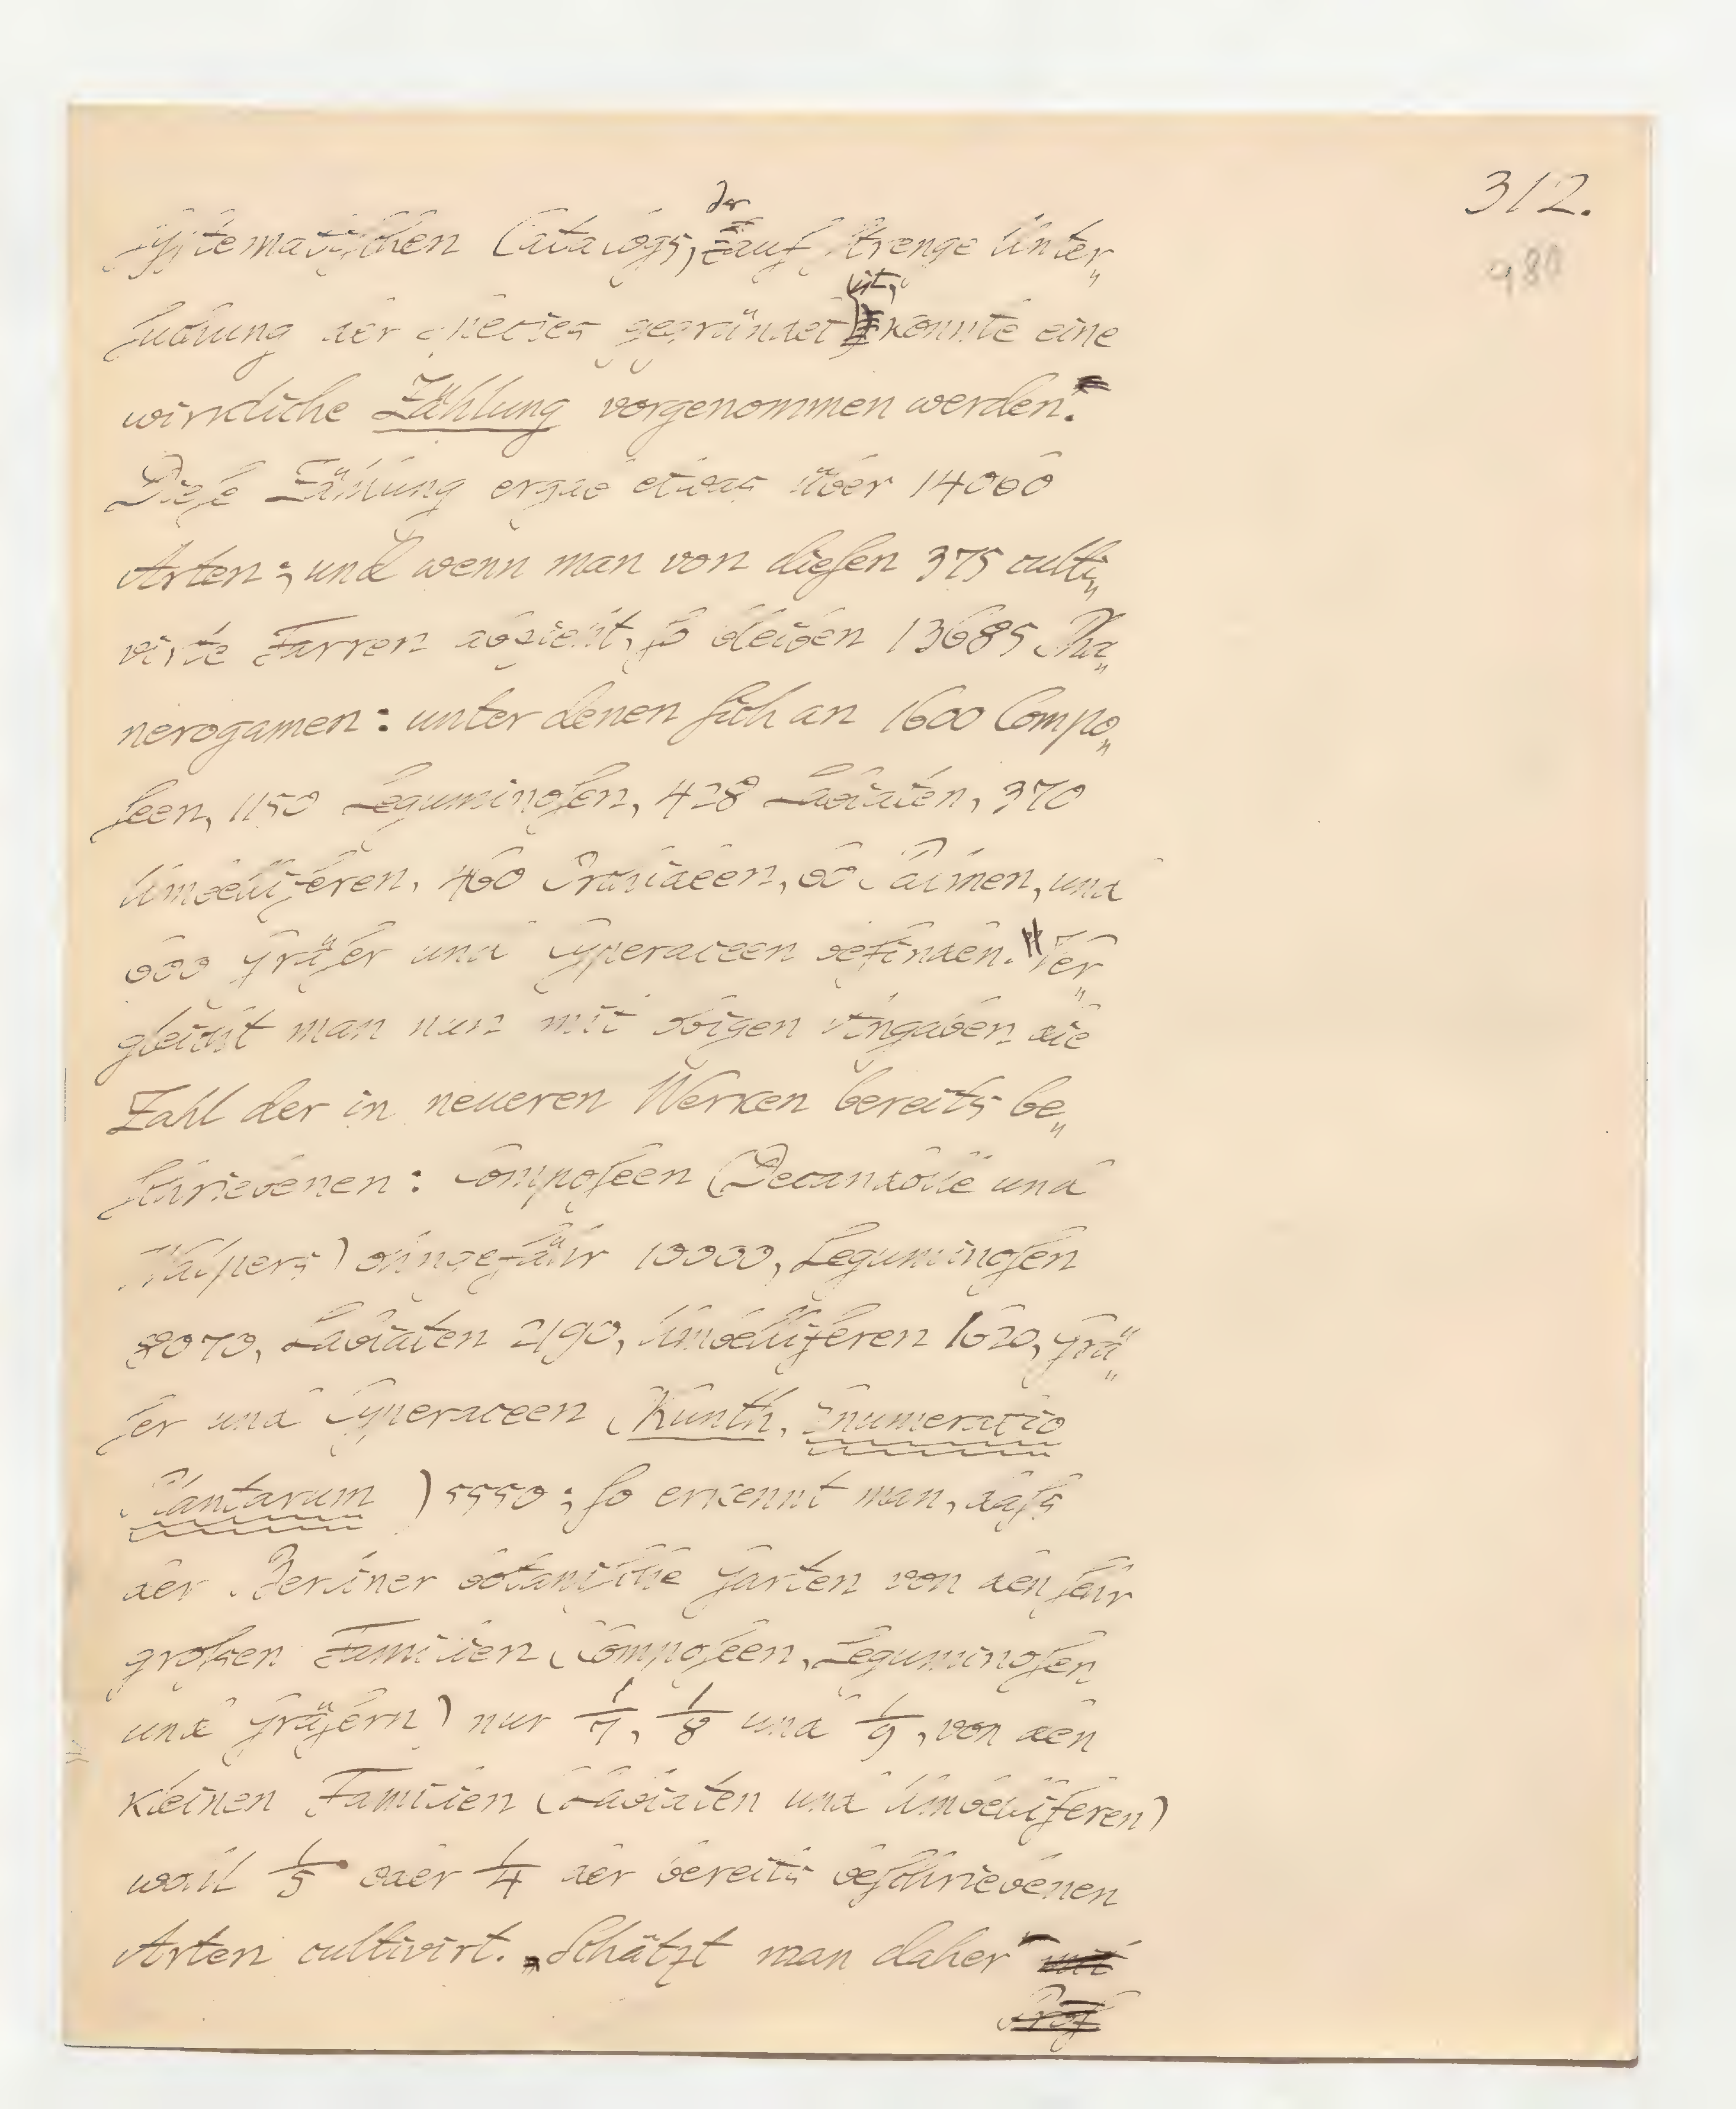 312.
980
der
systematischen Catalogs, auf strenge Unter„
suchung der Species gegründet ist, konnte eine
wirkliche Zählung vorgenommen werden.
Diese Zählung ergab etwas über 14060
Arten; und wenn man von diesen 375 culti„
virte Farren abzieht, so bleiben 13685 Pha„
nerogamen: unter denen sich an 1600 Compo„
seen, 1150 Leguminosen, 428 Labiaten, 370
Umbelliferen, 460 Orchideen, 60 Palmen, und
600 Gräser und Cyperaceen befinden. Ver„
gleicht man nun mit obigen Angaben die
Zahl der in neueren Werken bereits be„
schriebenen: Composeen (Decandolle und
Walpers) ohngefähr 10000, Leguminosen
8070, Labiaten 2190, Umbelliferen 1620, Grä„
ser und Cyperaceen (Kunth, Enumeratio
Plantarum) 5550; so erkennt man, dass
der Berliner botanische Garten von den sehr
grossen Familien (Composeen, Leguminosen
und Gräsern) nur 1/7, 1/8 und 1/9, von den
kleinen Familien (Labiaten und Umbelliferen)
wohl 1/5 oder 1/4 der bereits beschriebenen
Arten cultivirt. „Schätzt man daher mit
Prof